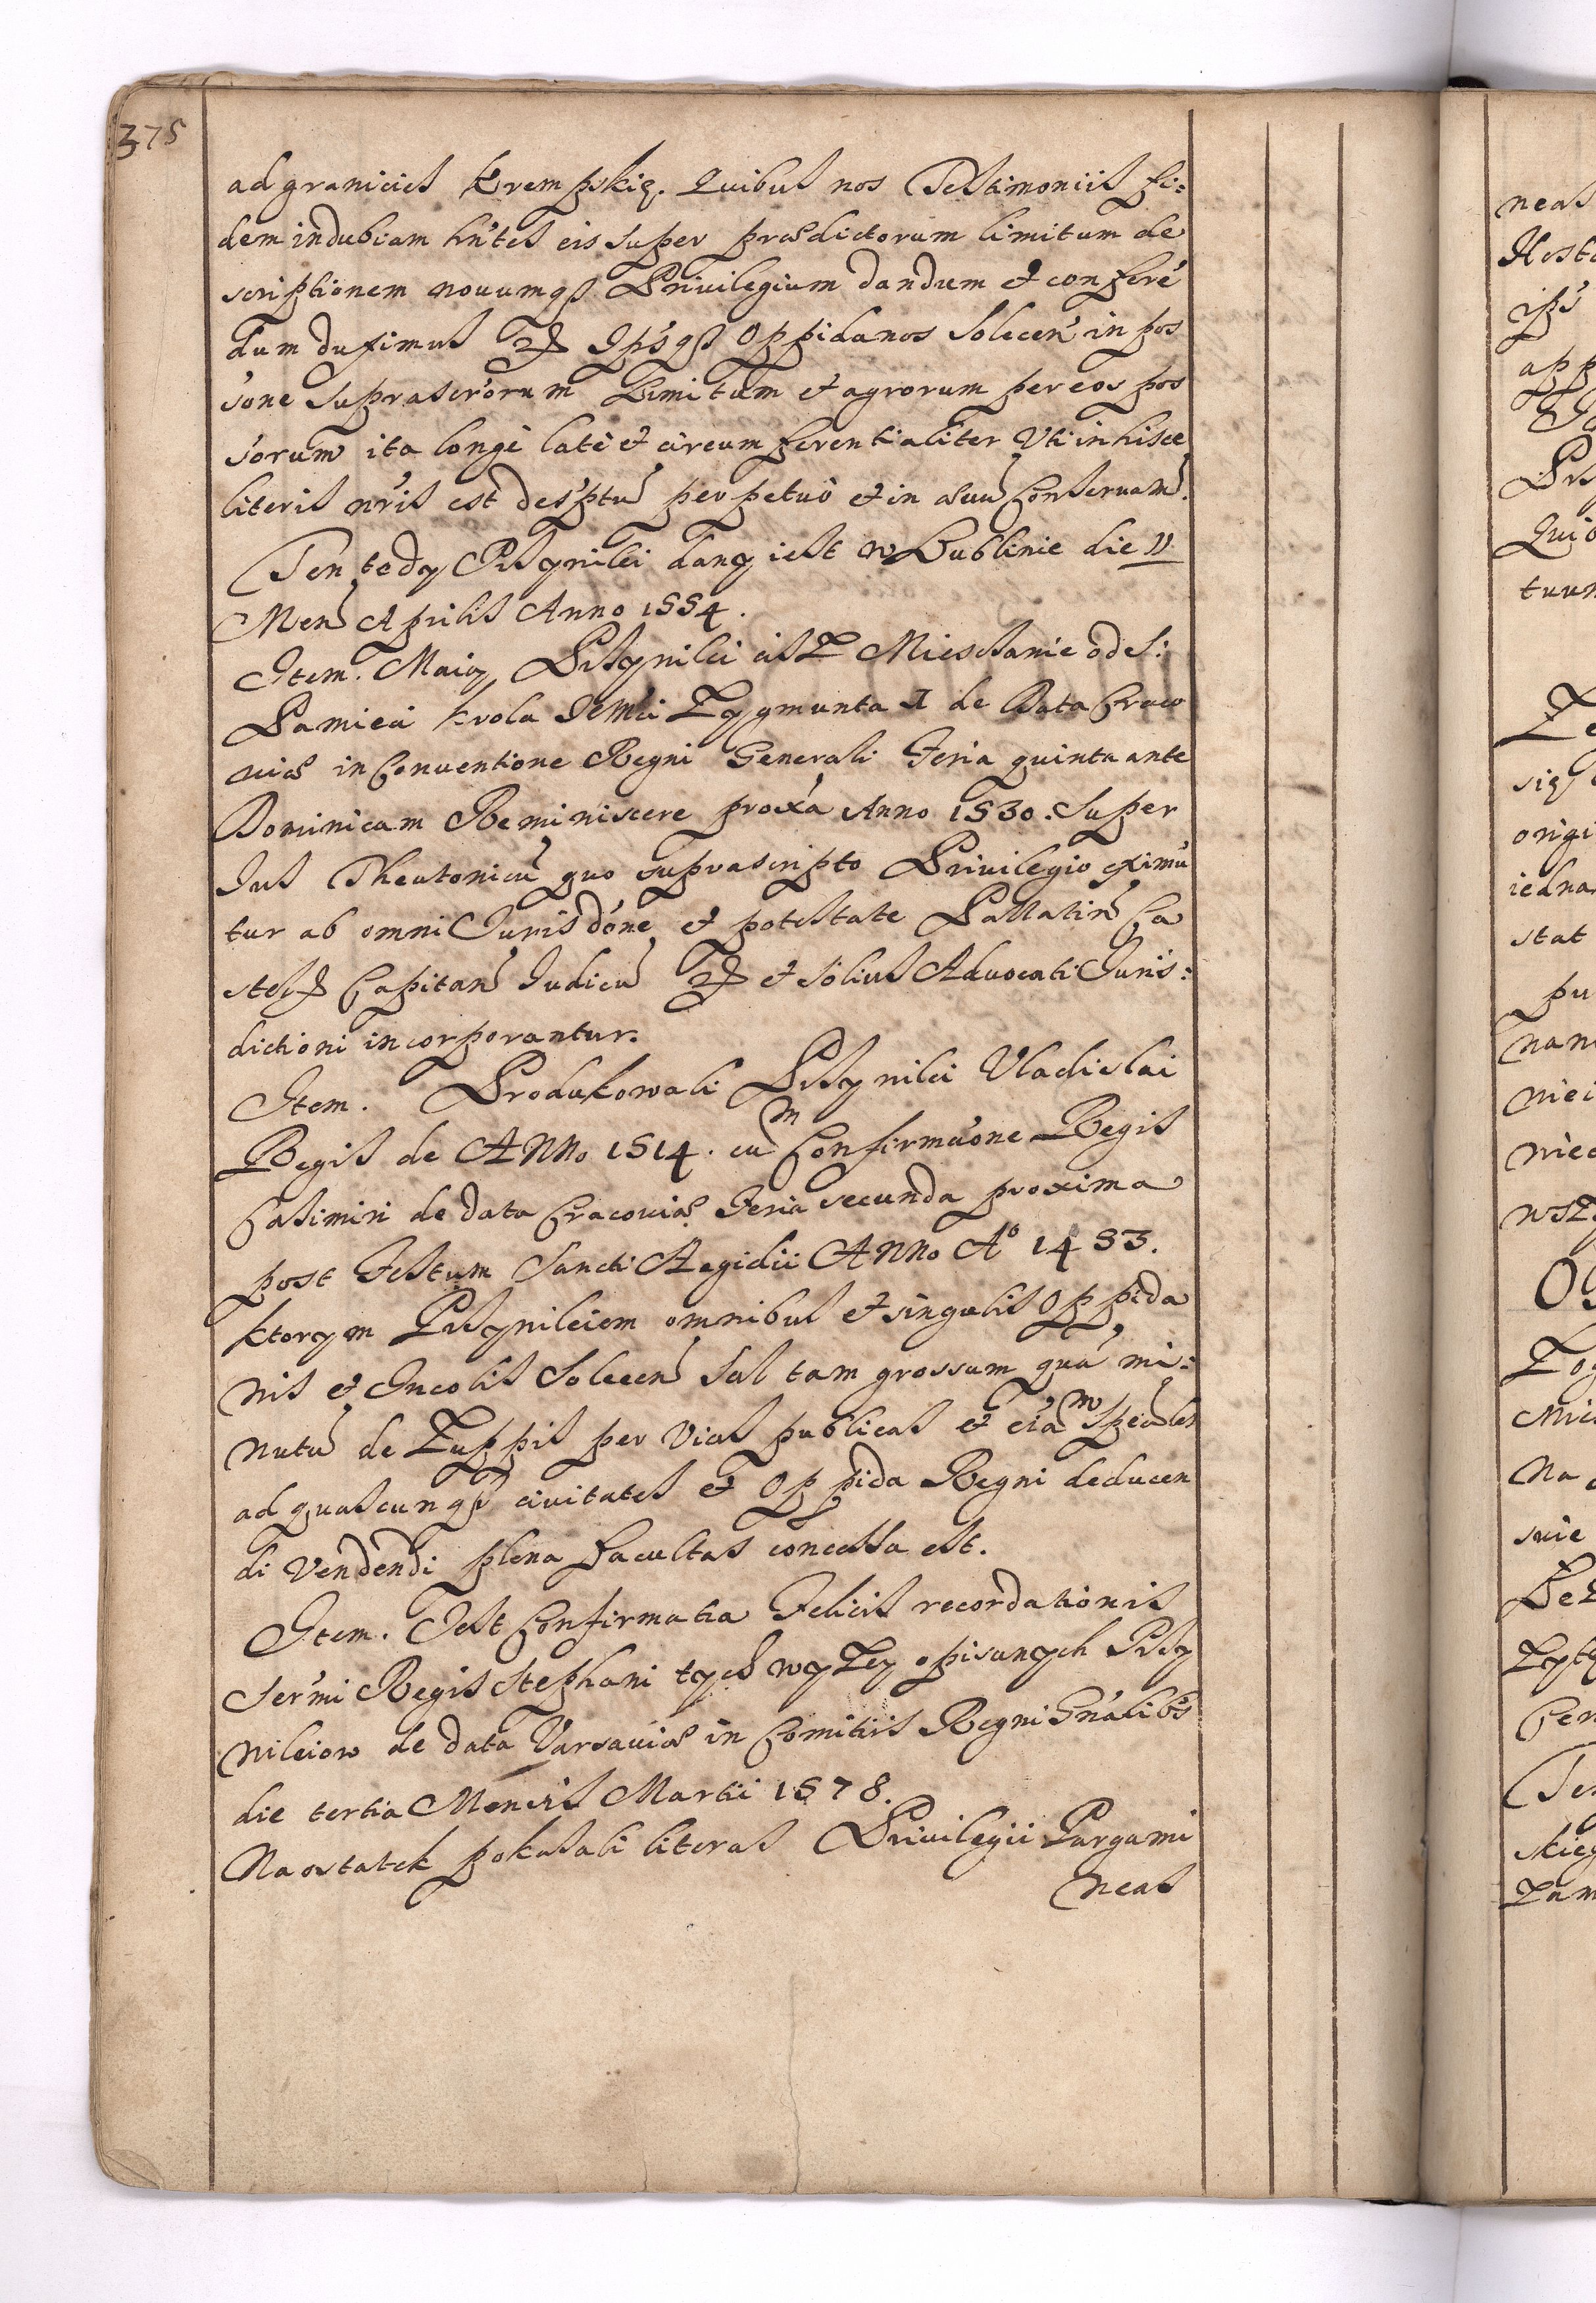 375
ad granicies Krempskię. Quibus nos Testimoniis fi:
dem indubiam hn'tes eis super prædictorum limitum de
scriptionem nouumqȝ Priuilegium dandum et confere'
dum duximus Ipsqȝ Oppidanos Solecen' in pos
s'one suprascr'orum Limitum et agrorum per eos pos
s'orum ita longe late et circumferentialiter Vti in hisce
literis nr'is est des'ptu perpetuo et in æuu Conseruam.
Ten tedy Przywilei dany iest w Lublinie die 11
Men Aprilis Anno 1554.
Item. Maią Przywilei ciż Miesczanie od S:
Pamięci Krola Jemci Zygmunta I de Data Craco
uiæ in Conuentione Regni Generali Feria quinta ante
Dominicam Reminiscere prox'a Anno 1530. Super
Ius Theutonicu quo suprascripto Priuilegio eximu
tur ab omni Jurisd'one et potestate Pallatin Ca
stel Capitan Iudicu et solius Aduocati Juris:
dictioni incorporantur.
Item. Produkowali Przywilei Vladislai
Regis de ANNo 1514. cum Confirma'one Regis
Casimiri de data Cracouiæ Feria secunda proxima
post Festum Sancti Aegidii ANNo Aº 1453.
ktorym Przywileiem omnibus et singulis Oppida
nis et Incolis Solecen Sal tam grossum qua' mi:
nutu de Zuppis per Vias publicas et e'iam speciales
ad quascunqȝ ciuitates et Oppida Regni deducen
di Vendendi plena Facultas concessa est.
Item. Jest Confirmatia Felicis recordationis
Ser'mi Regis Stephani tych wyżey opisanych Przy
wileiow de data Varsauiæ in Comitiis Regni Gn'alibs
die tertia Mensis Martii 1578.
Na ostatek pokazali literas Priuilegii Pargami
neas